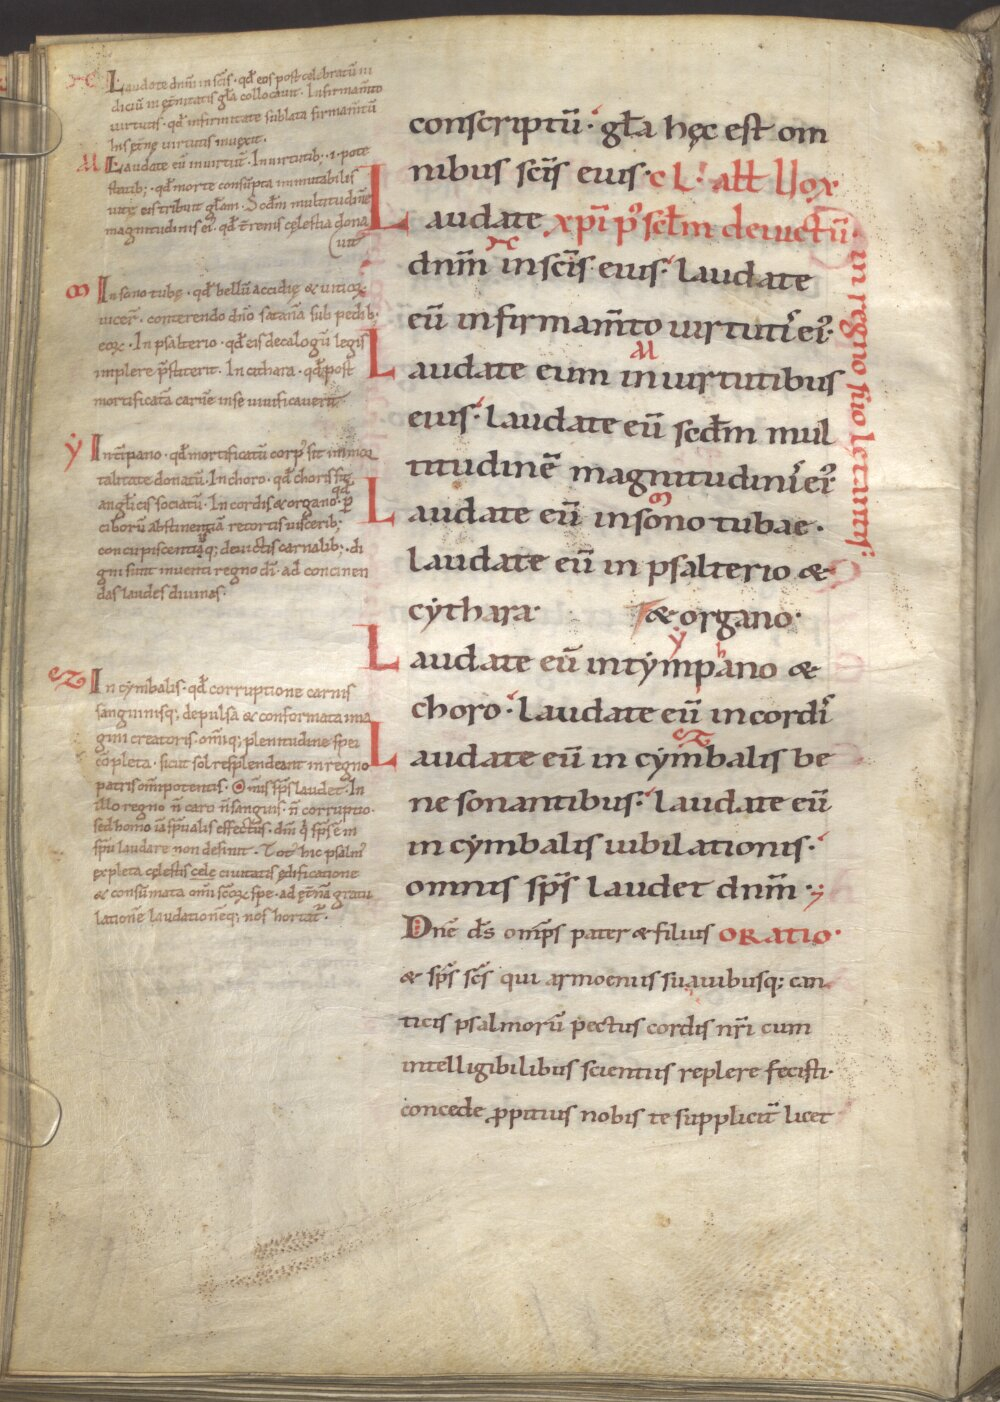 Laudate dnm̅ in sc̅is · qd̅ eos post celebratu̅ iu
diciu̅ in et̅nitatis gl̅a collocavit · Infirmam̅to
uirtutis · qd̅ infirmitate sublata firmam̅tu̅
his et̅ne uirtutis inuexit.
Laudate eu̅ in uirtut̅ · In uirtutib; · i · pote
statib; · qd̅ morte consu̅pta inmutabilis
uite eis tribuit gl̅am · Scd̅m multitudine̅
magnitudinis ei' · qd̅ t̅renis cęlestia dona
uit
In sono tubę · qd̅ bellu̅ accidię &
uicer̅ · conterendo dn̅o satana̅ sub pedib;
eoꝝ · In psalterio · qd̅ eis decalogu̅ legis
implere p̅stiterit · In cithara · qd̅ post
mortificata̅ carne̅ in se uiuificauerit
In ti̅pano · qd̅ mortificatu̅ corp' sit inmor
talitate donatu̅ · In choro · qd̅ choris sit
angl̅icis sociatu̅ · In cordis & organo · qd̅ p̲
ciboru̅ abstinentia̅ retortis uiscerib;
concupiscentiaq; deuictis carnalib; · di
gni sunt inuenti regno di̅ · ad concinen
das laudes diuinas ·
In cẏmbalis · qd̅ corruptione carnis
sanguinisq; depulsa & conformata ima
gini creatoris · om̅iq; plenitudine spei
co̅pleta · sicut sol resplendeant in regno
patris om̅ipotentis · Om̅is sp̅s laudet̅ · In
illo regno n̅ caro n̅ sanguis · n̅ corruptio ·
sed homo ia̅ sp̅ualis effectus̅ · dm̅ q̅ sp̅s e̅ in
sp̅u laudare non desinit · Tot' hic psalm'
expleta cęlestis cele ciuitatis ędificatione
& consu̅mata om̅i sc̅oꝝ spe · ad et̅na̅ gratu
latione̅ laudatione̅q; nos hortat̅ ·
conscriptu̅ · gl̅a hęc est om
nibus sc̅is eius · CL · all̅
Laudate xp̅i p' scl̅m deuictu̅ ·
in regno suo letantis
dnm̅ in sc̅is eius · laudate
eu̅ in firmam̅to uirtuti' ei' ·
Laudate eum in uirtutibus
eius · laudate eu̅ scd̅m mul
titudine̅ magnitudini' ei' ·
Laudate eu̅ in sono tubae ·
laudate eu̅ in psalterio &
cẏthara · & organo ·
Laudate eu̅ in tẏmphano &
choro · laudate eu̅ in cordi'
Laudate eu̅ in cẏmbalis be
ne sonantibus · laudate eu̅
in cẏmbalis iubilationis ·
omnis sp̅s laudet dnm̅ ·;
Dn̅e ds̅ omp̅s pater & filius ORATIO ·
& sp̅s sc̅s qui armoeniis suauibusq; can
ticis psalmoru̅ pectus cordis nr̅i cum
intelligibilibus scientiis replere fecisti ·
concede p̲pitius nobis te supplicit̅ licet